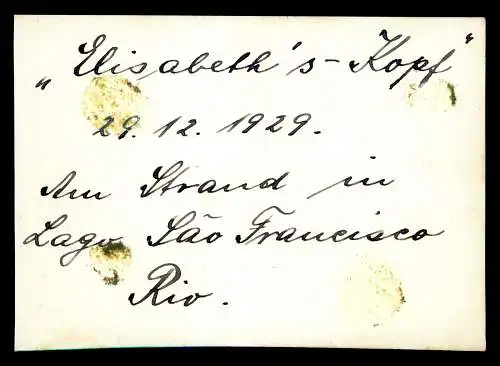 „Elisabeth's-Kopf“
29.12.1929.
Am Strand in
Lago São Francisco
Rio.